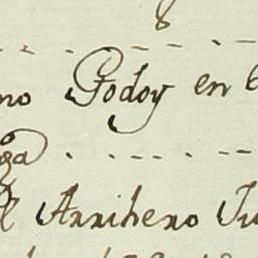 8
no Godoy en
ga
el Arrihero Ju